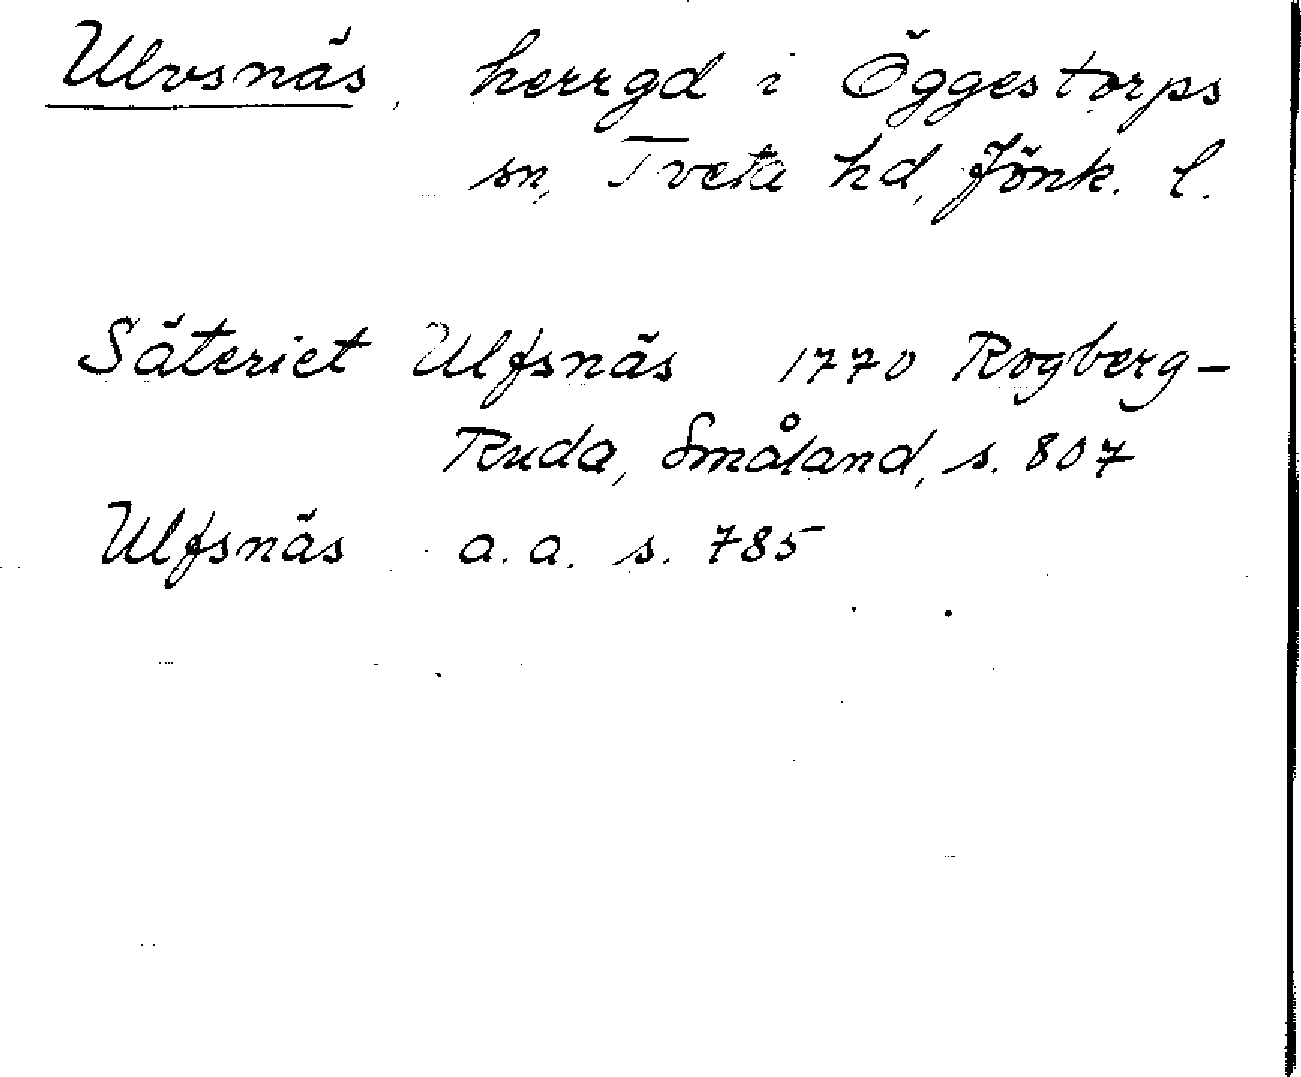 Ulvsnäs, herrgd i Öggestorps
sn, Tveta hd, Jönk. l.
Säteriet Ulfsnäs 1770 Rogberg-
Ruda, Småland, s. 807
Ulfsnäs a. a. s. 785